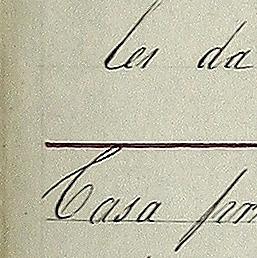 les da
Casa pr